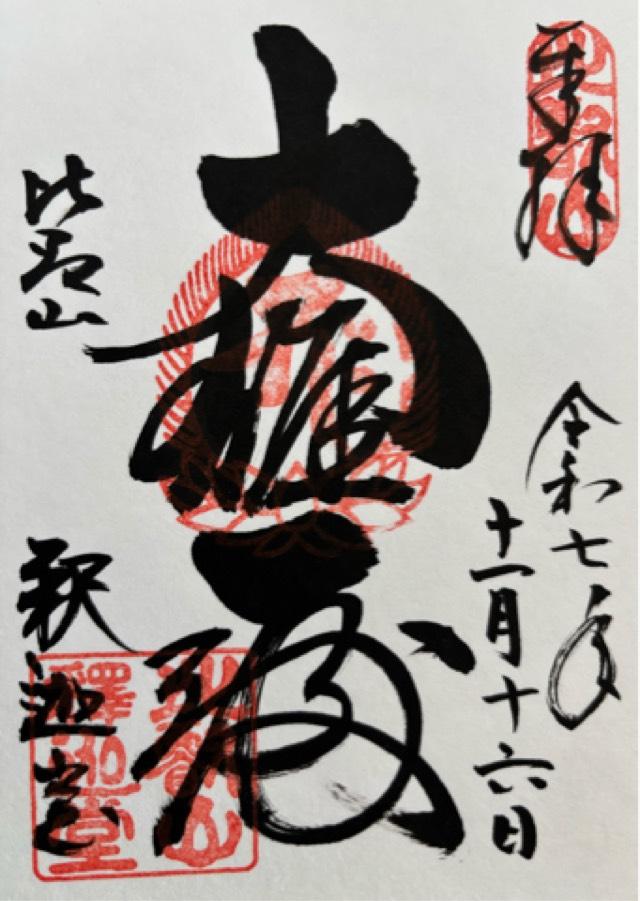 奉拝
令和七年
十一月十六日
大雄殿
比叡山
釈迦堂
比叡山
釋迦堂